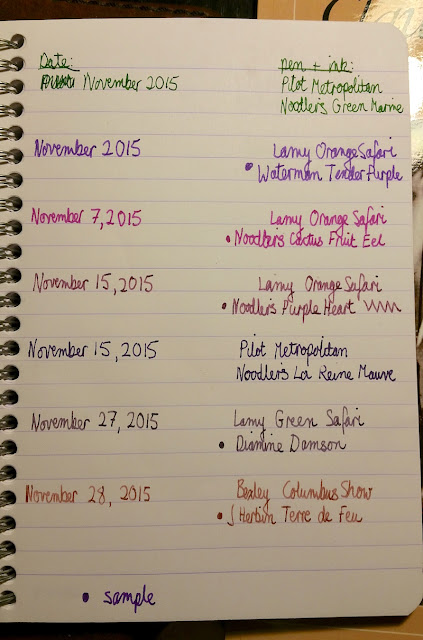 Date: pen + ink:
November 2015 Pilot Metropolitan
Noodler's Green Marine
November 2015 Lamy Orange Safari
• Waterman Tender Purple
November 7, 2015 Lamy Orange Safari
• Noodler's Cactus Fruit Eel
November 15, 2015 Lamy Orange Safari
• Noodler's Purple Heart
November 15, 2015 Pilot Metropolitan
Noodler's La Reine Mauve
November 27, 2015 Lamy Green Safari
• Diamine Damson
November 28, 2015 Bexley Columbus Show
• J Herbin Terre de Feu
• sample